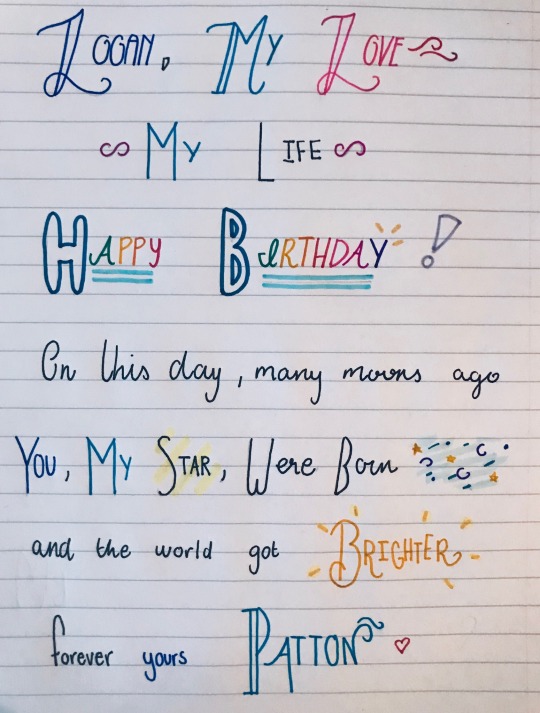 Logan, My Love
My Life
Happy Birthday!
On this day, many moons ago
You, My Star, Were Born
and the world got Brighter
forever yours Patton